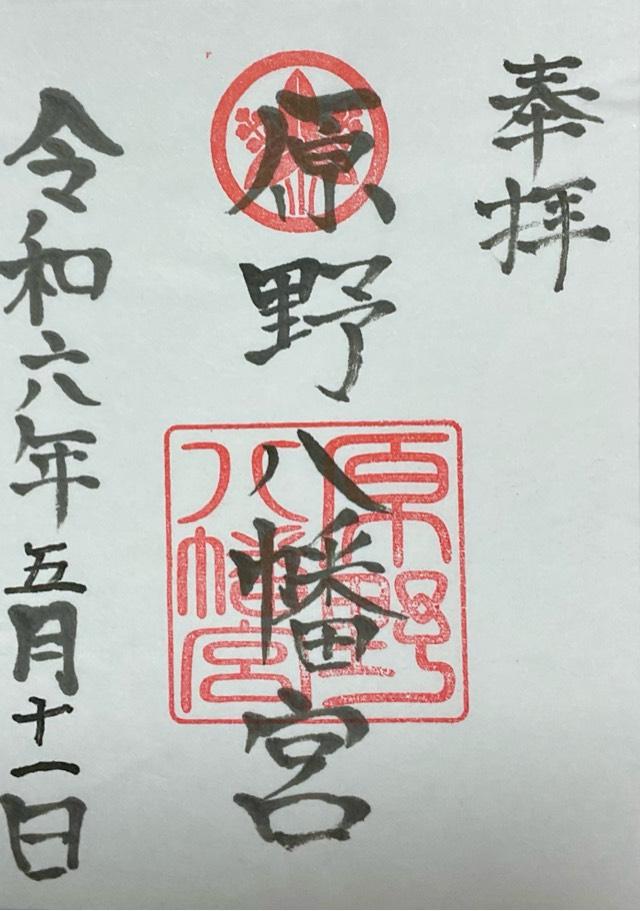 奉拝
原野八幡宮
原野八幡宮
令和六年五月十一日